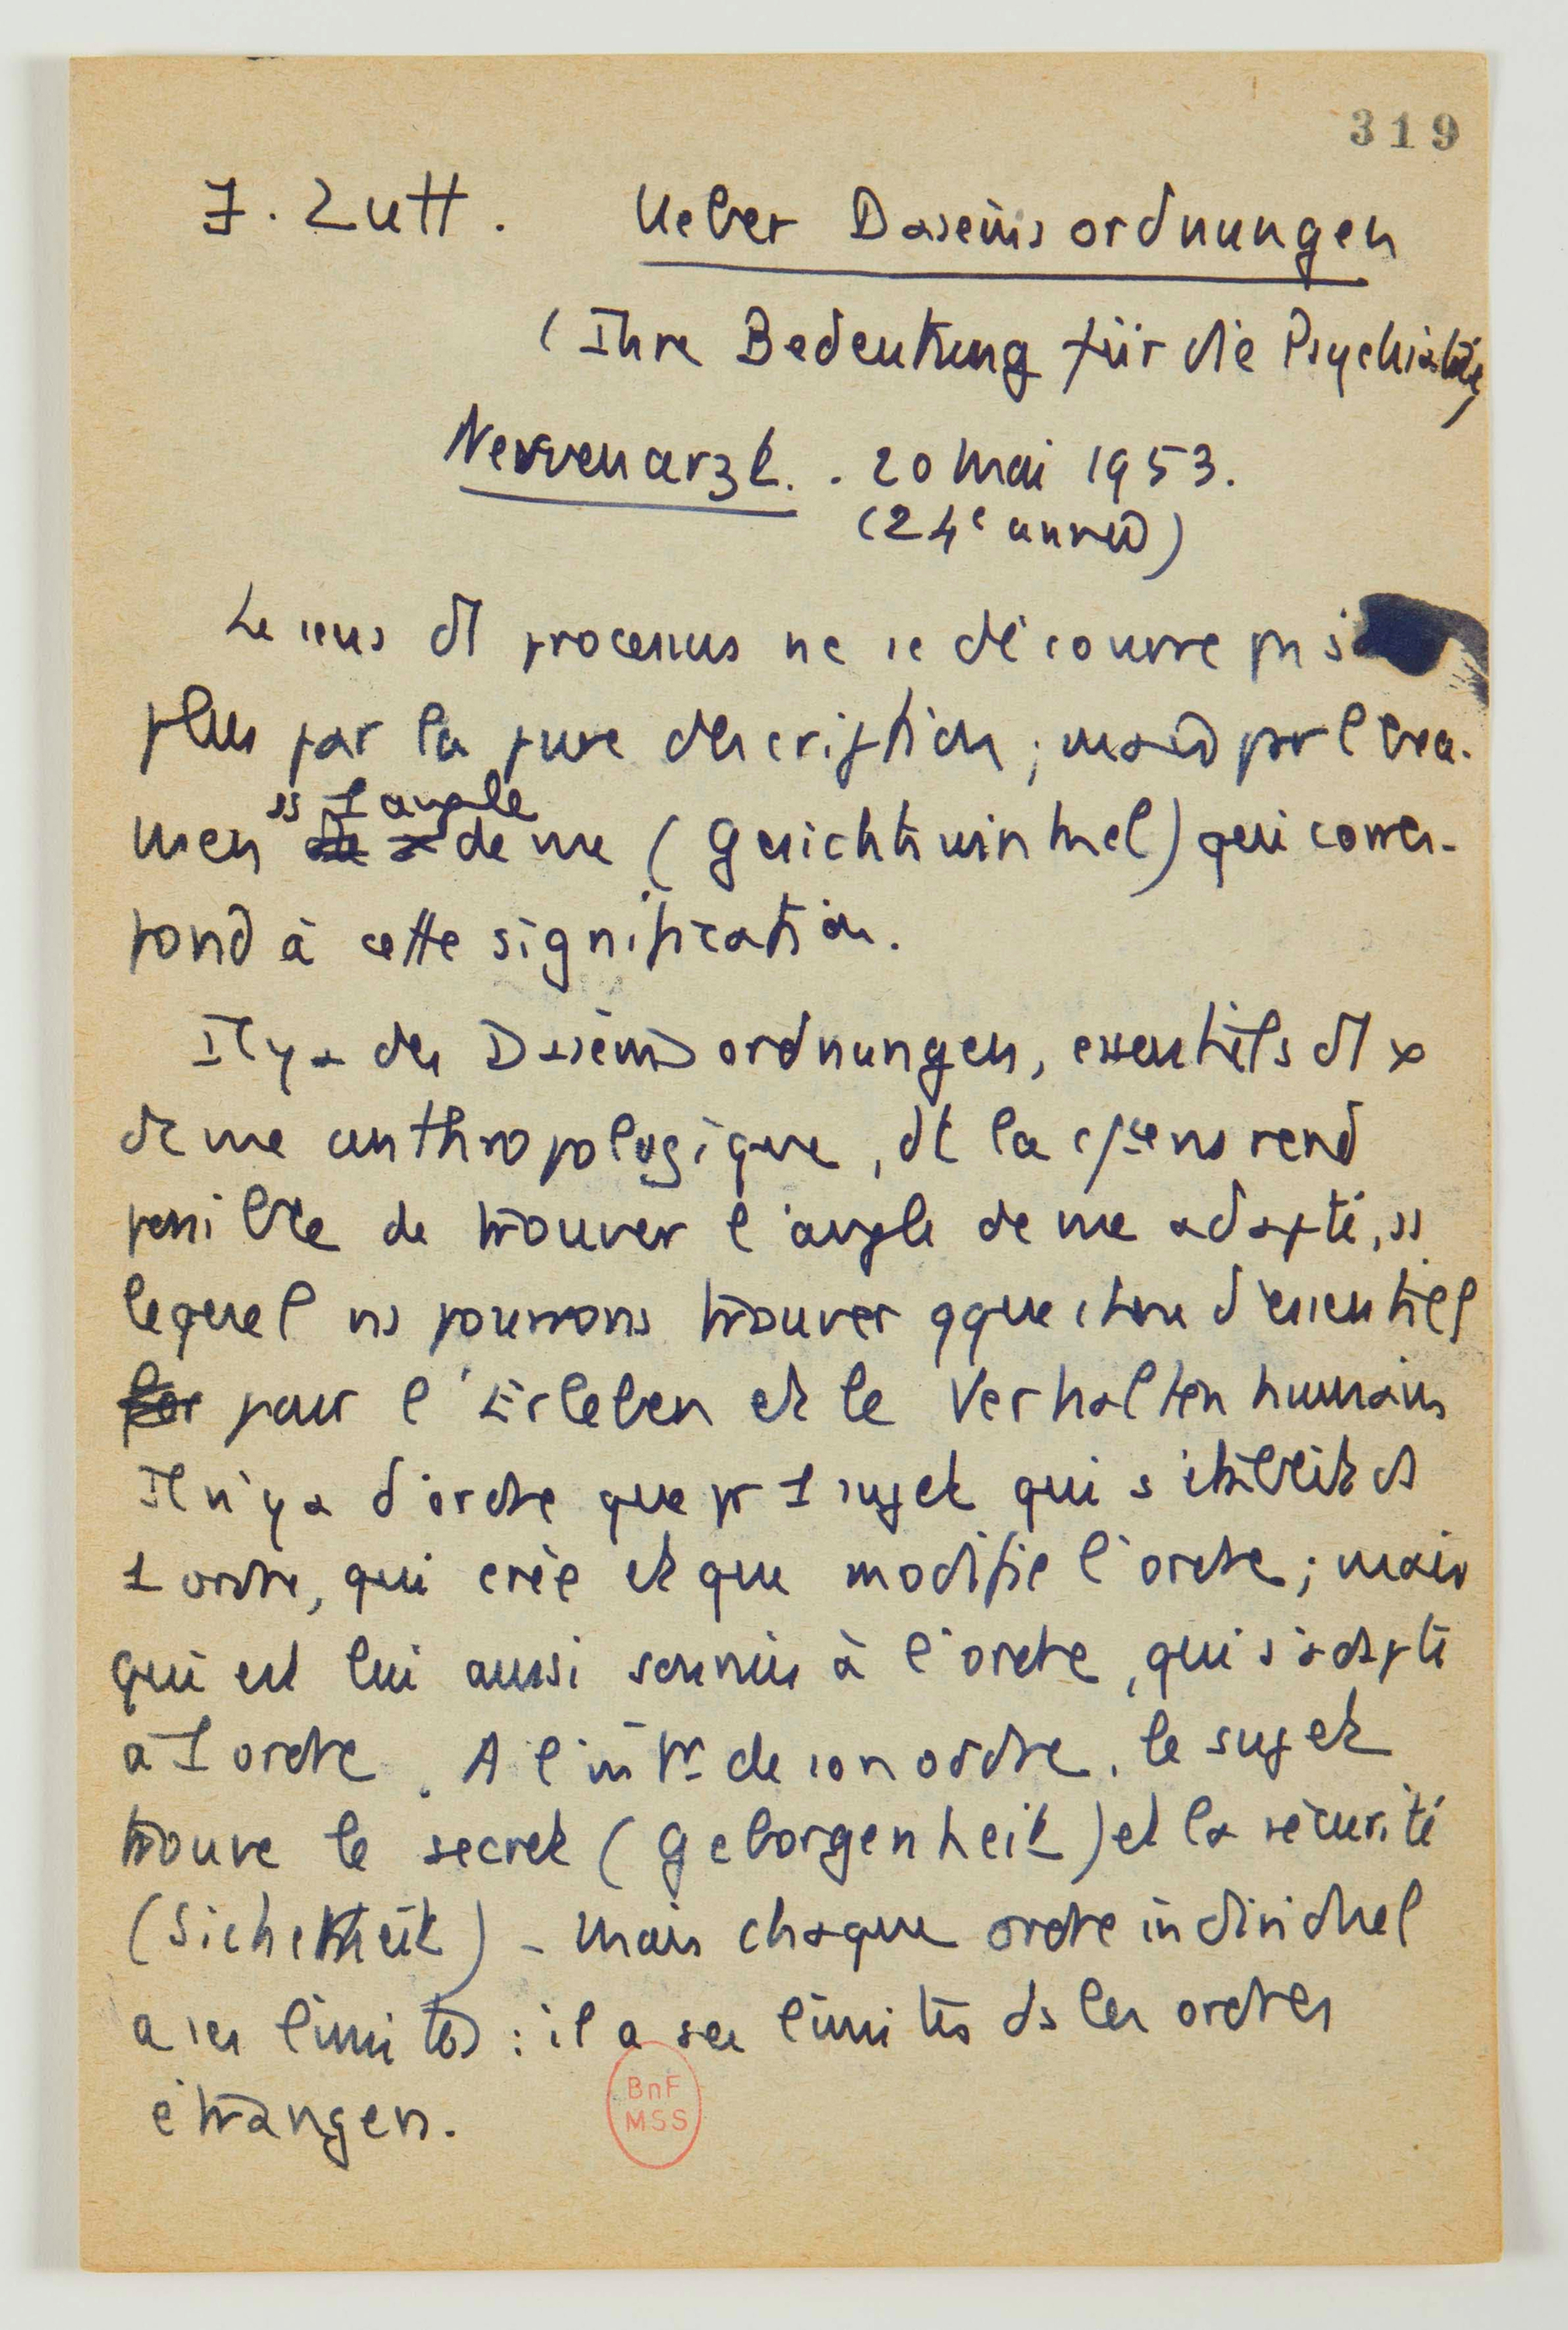 319
J. Zutt. Ueber Daseinsordnungen
(Ihre Bedeutung für die Psychiatrie)
Nervenarzt. . 20 Mai 1953.
(24e année)
Le sens d'1 processus ne se découvre pas
plus par la pure description ; mais par l'exa-
ss 1 angle
men de vue (Gesichtswinkel) qui corres-
pond à cette signification.
Il y a des Daseinsordnungen, essentiels d'1
de vue anthropologique, dt la rend
possible de trouver l'angle de vue adapté, ss
lequel ns pourrons trouver qque chose d'essentiel
pour l'Erleben et le Verhalten humains
Il n'y a d'ordre que pr 1 sujet qui s'établit ds
1 ordre, qui crée et que modifie l'ordre ; mais
qui est lui aussi soumis à l'ordre, qui s'adapte
à 1 ordre. A l'intr de son ordre, le sujet
trouve le secret (Geborgenheit) et la sécurité
(Sicherheit) - Mais chaque ordre individuel
a ses limites : il a ses limites ds les ordres
étrangers.
BnF
MSS